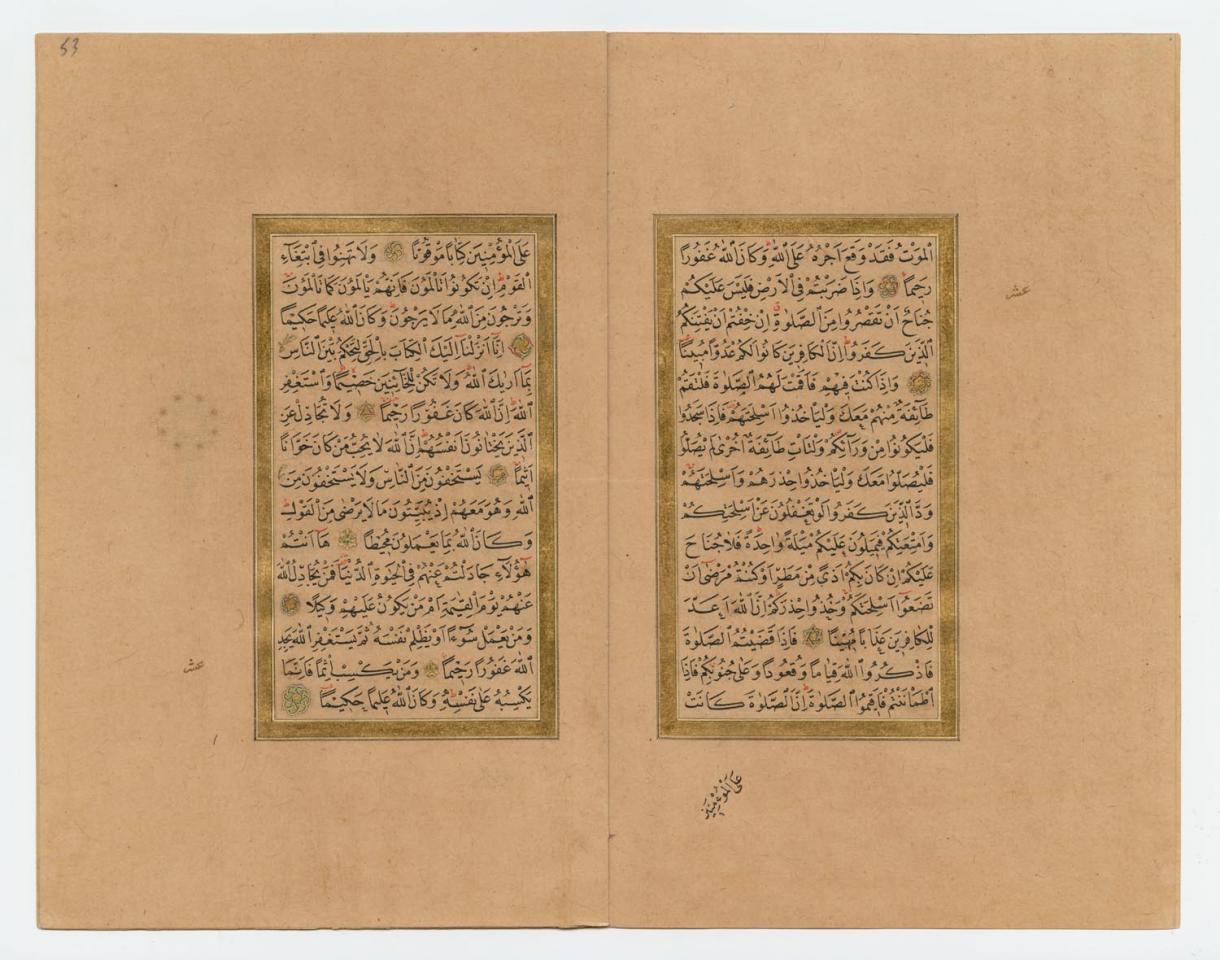 الْمَوْتُ فَقَدْ وَقَعَ اَجْرُهُ عَلَى اللّٰهِ وَكَانَ اللّٰهُ غَفُورًا
رَحِيمًا وَاِذَا ضَرَبْتُمْ فِى الْاَرْضِ فَلَيْسَ عَلَيْكُمْ
جُنَاحٌ اَنْ تَقْصُرُوا مِنَ الصَّلٰوةِ اِنْ خِفْتُمْ اَنْ يَفْتِنَكُمُ
الَّذِينَ كَفَرُوا اِنَّ الْكَافِرِينَ كَانُوا لَكُمْ عَدُوًّا مُبِينًا
وَاِذَا كُنْتَ فِيهِمْ فَاَقَمْتَ لَهُمُ الصَّلٰوةَ فَلْتَقُمْ
طَآئِفَةٌ مِنْهُمْ مَعَكَ وَلْيَاْخُذُوا اَسْلِحَتَهُمْ فَاِذَا سَجَدُوا
فَلْيَكُونُوا مِنْ وَرَآئِكُمْ وَلْتَاْتِ طَآئِفَةٌ اُخْرٰى لَمْ يُصَلُّوا
فَلْيُصَلُّوا مَعَكَ وَلْيَاْخُذُوا حِذْرَهُمْ وَاَسْلِحَتَهُمْ
وَدَّ الَّذِينَ كَفَرُوا لَوْ تَغْفُلُونَ عَنْ اَسْلِحَتِكُمْ
وَاَمْتِعَتِكُمْ فَيَمِيلُونَ عَلَيْكُمْ مَيْلَةً وَاحِدَةً فَلَا جُنَاحَ
عَلَيْكُمْ اِنْ كَانَ بِكُمْ اَذًى مِنْ مَطَرٍ اَوْ كُنْتُمْ مَرْضٰى اَنْ
تَضَعُوا اَسْلِحَتَكُمْ وَخُذُوا حِذْرَكُمْ اِنَّ اللّٰهَ اَعَدَّ
لِلْكَافِرِينَ عَذَابًا مُهِينًا فَاِذَا قَضَيْتُمُ الصَّلٰوةَ
فَاذْكُرُوا اللّٰهَ قِيَامًا وَقُعُودًا وَعَلٰى جُنُوبِكُمْ فَاِذَا
اطْمَاْنَنْتُمْ فَاَقِيمُوا الصَّلٰوةَ اِنَّ الصَّلٰوةَ كَانَتْ
عَلَى الْمُؤْمِنِينَ
عشر
53
عَلَى الْمُؤْمِنِينَ كِتَابًا مَوْقُوتًا وَلَا تَهِنُوا فِى ابْتِغَآءِ
الْقَوْمِ اِنْ تَكُونُوا تَاْلَمُونَ فَاِنَّهُمْ يَاْلَمُونَ كَمَا تَاْلَمُونَ
وَتَرْجُونَ مِنَ اللّٰهِ مَا لَا يَرْجُونَ وَكَانَ اللّٰهُ عَلِيمًا حَكِيمًا
اِنَّا اَنْزَلْنَا اِلَيْكَ الْكِتَابَ بِالْحَقِّ لِتَحْكُمَ بَيْنَ النَّاسِ
بِمَا اَرٰيكَ اللّٰهُ وَلَا تَكُنْ لِلْخَآئِنِينَ خَصِيمًا وَاسْتَغْفِرِ
اللّٰهَ اِنَّ اللّٰهَ كَانَ غَفُورًا رَحِيمًا وَلَا تُجَادِلْ عَنِ
الَّذِينَ يَخْتَانُونَ اَنْفُسَهُمْ اِنَّ اللّٰهَ لَا يُحِبُّ مَنْ كَانَ خَوَّانًا
اَثِيمًا يَسْتَخْفُونَ مِنَ النَّاسِ وَلَا يَسْتَخْفُونَ مِنَ
اللّٰهِ وَهُوَ مَعَهُمْ اِذْ يُبَيِّتُونَ مَا لَا يَرْضٰى مِنَ الْقَوْلِ
وَكَانَ اللّٰهُ بِمَا يَعْمَلُونَ مُحِيطًا هَا اَنْتُمْ
هٰؤُلَآءِ جَادَلْتُمْ عَنْهُمْ فِى الْحَيٰوةِ الدُّنْيَا فَمَنْ يُجَادِلُ اللّٰهَ
عَنْهُمْ يَوْمَ الْقِيٰمَةِ اَمْ مَنْ يَكُونُ عَلَيْهِمْ وَكِيلًا
وَمَنْ يَعْمَلْ سُوٓءًا اَوْ يَظْلِمْ نَفْسَهُ ثُمَّ يَسْتَغْفِرِ اللّٰهَ يَجِدِ
اللّٰهَ غَفُورًا رَحِيمًا وَمَنْ يَكْسِبْ اِثْمًا فَاِنَّمَا
يَكْسِبُهُ عَلٰى نَفْسِهِ وَكَانَ اللّٰهُ عَلِيمًا حَكِيمًا
عشر